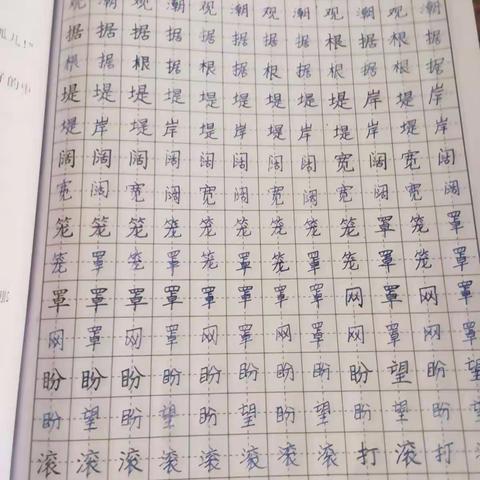 儿!"
的中
观潮观潮观潮观潮观潮观潮
据据据据据据据据根据根据
根据根据根据根据根据根据
堤堤堤堤堤堤堤堤堤岸堤岸
堤岸堤岸堤岸堤岸堤岸堤岸
阔阔阔阔阔阔阔阔宽阔宽阔
宽阔宽阔宽阔宽阔宽阔宽阔
笼笼笼笼笼笼笼笼笼罩笼罩
笼罩笼罩笼罩笼罩笼罩笼罩
罩罩罩罩罩罩罩罩网罩网罩
网罩网罩网罩网罩网罩网罩
盼盼盼盼盼盼盼盼盼望盼望
盼望盼望盼望盼望盼望盼望
滚滚滚滚滚滚滚滚打滚打